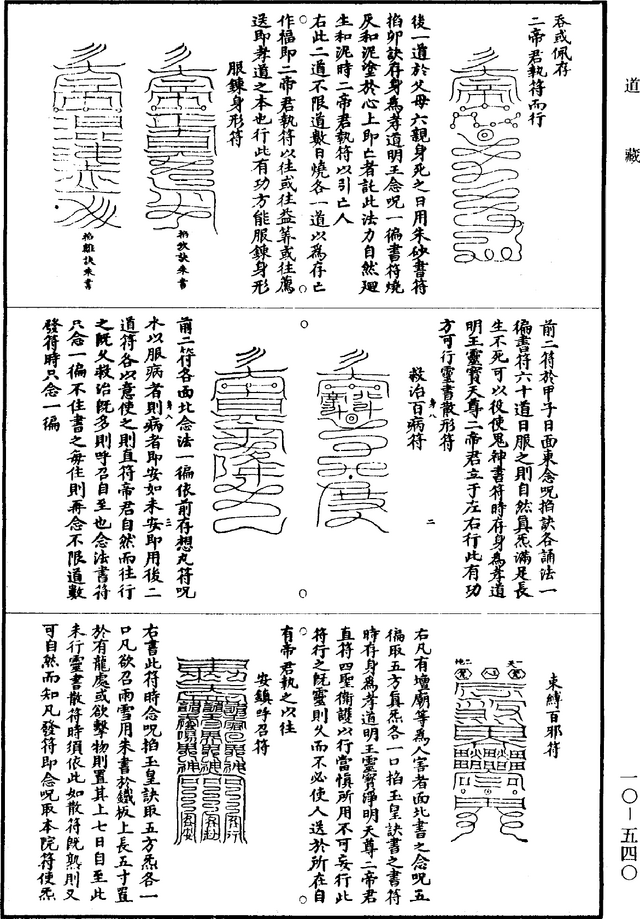 道藏
吞或佩存
二帝君執符而行
後一道於父母六親身死之日用朱砂書符
掐卯訣存身為孝道明王念呪一徧書符燒
灰和泥塗於心上即亡者託此法力自然迴
生和泥時二帝君執符以引亡人
右此二道不限道數日燒各一道以為存亡
作福即二帝君執符以往或往益筭或往薦
送即孝道之本也行此有功方能服鍊身形
服鍊身形符
掐玫訣朱書
掐離訣朱書
前二符於甲子日面東念呪掐訣各誦法一
徧書符六十道日服之則自然真炁滿足長
生不死可以役使鬼神書符時存身為孝道
明王靈寶天尊二帝君立于左右行此有功
方可行靈書散形符
救治百病符
前二符各面北念法一徧依前存想丸符呪
水以服病者則病者即安如未安即用後二
道符各以意使之則直符帝君自然而往行
之既久救治既多則呼召自至也念法書符
只念一徧不住書之每住則再念不限道數
發符時只念一徧
束縛百邪符
右凡有壇廟等為人害者面北書之念呪五
徧取五方真炁各一口掐玉皇訣書之書符
時存身為孝道明王靈寶淨明天尊二帝君
直符四聖衞護以行當慎所用不可妄行此
符行之既靈則久而不必使人送於所在自
有帝君執之以往
安鎮呼召符
右書此符時念呪掐玉皇訣取五方炁各一
口凡欲召雨雪用朱書於鐵板上長五寸置
於有龍處或欲擊物則置其上七日自至此
未行靈書散符時須依此如散符既熟則又
可自然而知凡發符即念呪取本院符使炁
一〇－五四〇